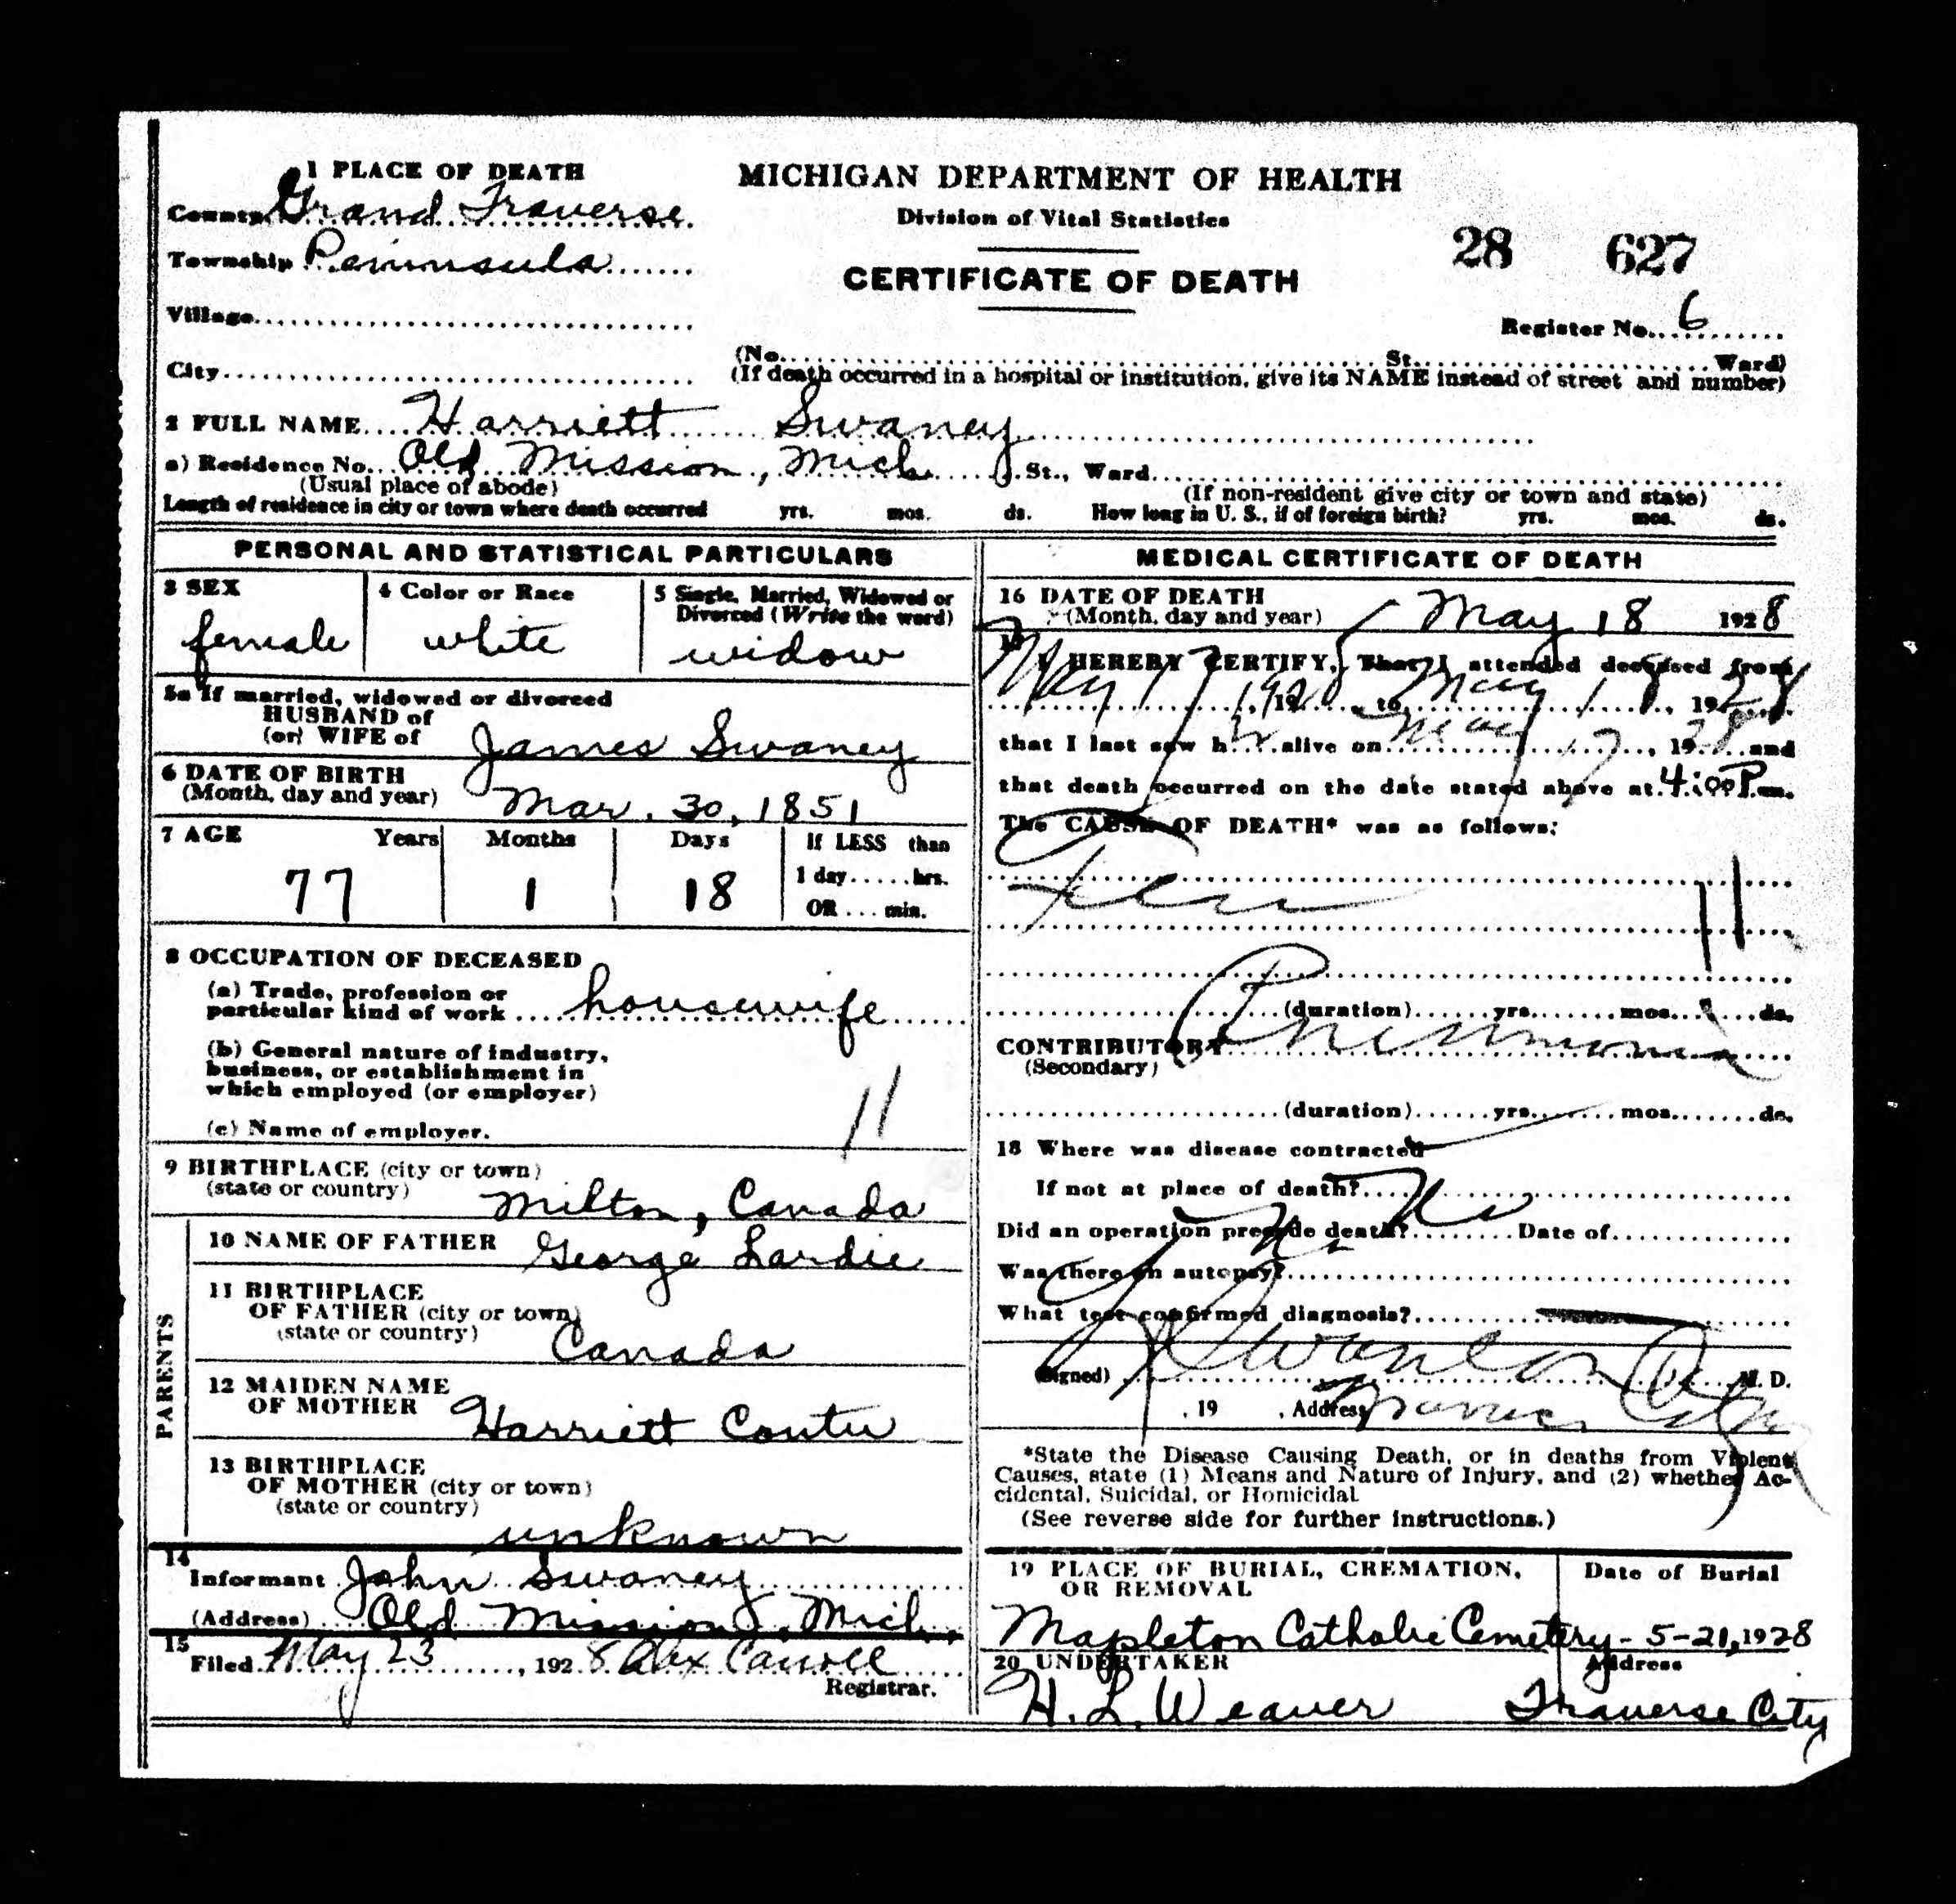 1 PLACE OF DEATH
County Grand Traverse
Township Peninsula
Village
City
MICHIGAN DEPARTMENT OF HEALTH
Division of Vital Statistics
CERTIFICATE OF DEATH
28 627
Register No. 6
(No. St. Ward)
(If death occurred in a hospital or institution, give its NAME instead of street and number)
2 FULL NAME Harriett Swaney
a) Residence No. Old Mission, Mich. St., Ward
(Usual place of abode)
(If non-resident give city or town and state)
Length of residence in city or town where death occurred yrs. mos. ds. How long in U. S., if of foreign birth? yrs. mos. ds.
PERSONAL AND STATISTICAL PARTICULARS
3 SEX
female
4 Color or Race
white
5 Single, Married, Widowed or
Divorced (Write the word)
widow
5a If married, widowed or divorced
HUSBAND of
(or) WIFE of James Swaney
6 DATE OF BIRTH
(Month, day and year) Mar. 30, 1851
7 AGE Years Months Days If LESS than
1 day hrs.
OR min.
77 1 18
8 OCCUPATION OF DECEASED
(a) Trade, profession or
particular kind of work housewife
(b) General nature of industry,
business, or establishment in
which employed (or employer)
(c) Name of employer.
11
9 BIRTHPLACE (city or town)
(state or country) Milton, Canada
PARENTS
10 NAME OF FATHER George Lardie
11 BIRTHPLACE
OF FATHER (city or town)
(state or country) Canada
12 MAIDEN NAME
OF MOTHER Harriett Coutu
13 BIRTHPLACE
OF MOTHER (city or town)
(state or country)
unknown
14
Informant John Swaney
(Address) Old Mission, Mich.
15
Filed May 23, 1928 Alex Carroll
Registrar.
MEDICAL CERTIFICATE OF DEATH
16 DATE OF DEATH
(Month, day and year) May 18 1928
17 I HEREBY CERTIFY, That I attended deceased from
May 17, 1928, to May 18, 1928
that I last saw h alive on May 17, 1928 and
that death occurred on the date stated above at 4:00 P.m.
The CAUSE OF DEATH* was as follows:
Flu
11
(duration) yrs. mos. ds.
CONTRIBUTORY Pneumonia
(Secondary)
(duration) yrs. mos. ds.
18 Where was disease contracted
If not at place of death?
Did an operation precede death? No Date of
Was there an autopsy? No
What test confirmed diagnosis?
(Signed) Swanton M. D.
, 19 , Address Traverse City
*State the Disease Causing Death, or in deaths from Violent
Causes, state (1) Means and Nature of Injury, and (2) whether Ac-
cidental, Suicidal, or Homicidal
(See reverse side for further instructions.)
19 PLACE OF BURIAL, CREMATION,
OR REMOVAL
Date of Burial
Mapleton Catholic Cemetery - 5-21, 1928
20 UNDERTAKER Address
H. L. Weaver Traverse City